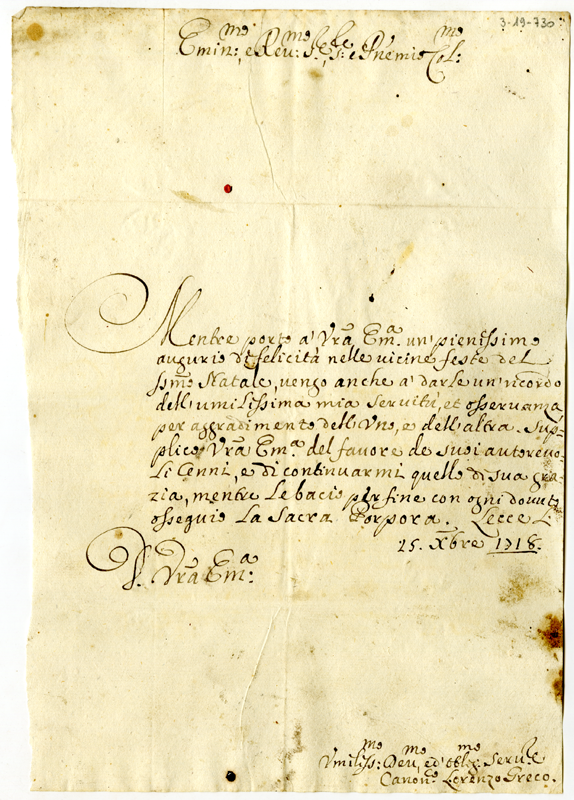 3-19-730
Emin:mo, e Rev:mo Sig:re, Sig:re e Pne mio Col:mo
Mentre porto à Vrã Em.a un' pienissimo
augurio di felicità nelle vicine feste del
ssmo Natale, vengo anche à darle un' ricordo
dell' umilissima mia servitù, et osservanza
per aggradimento dell' Uno, e dell' altra. Sup-
plico Vrã Em.a del favore de suoi autorevo-
li Cenni, e di continuarmi quello di sua gra-
zia, mentre le bacio per fine con ogni dovuto
ossequio la Sacra Porpora. Lecce li
15. Xbre 1718.
D. Vrã Em:a
Umiliss:mo Dev:mo, ed Oblig:mo Serv:re
Canon:co Lorenzo Greco.